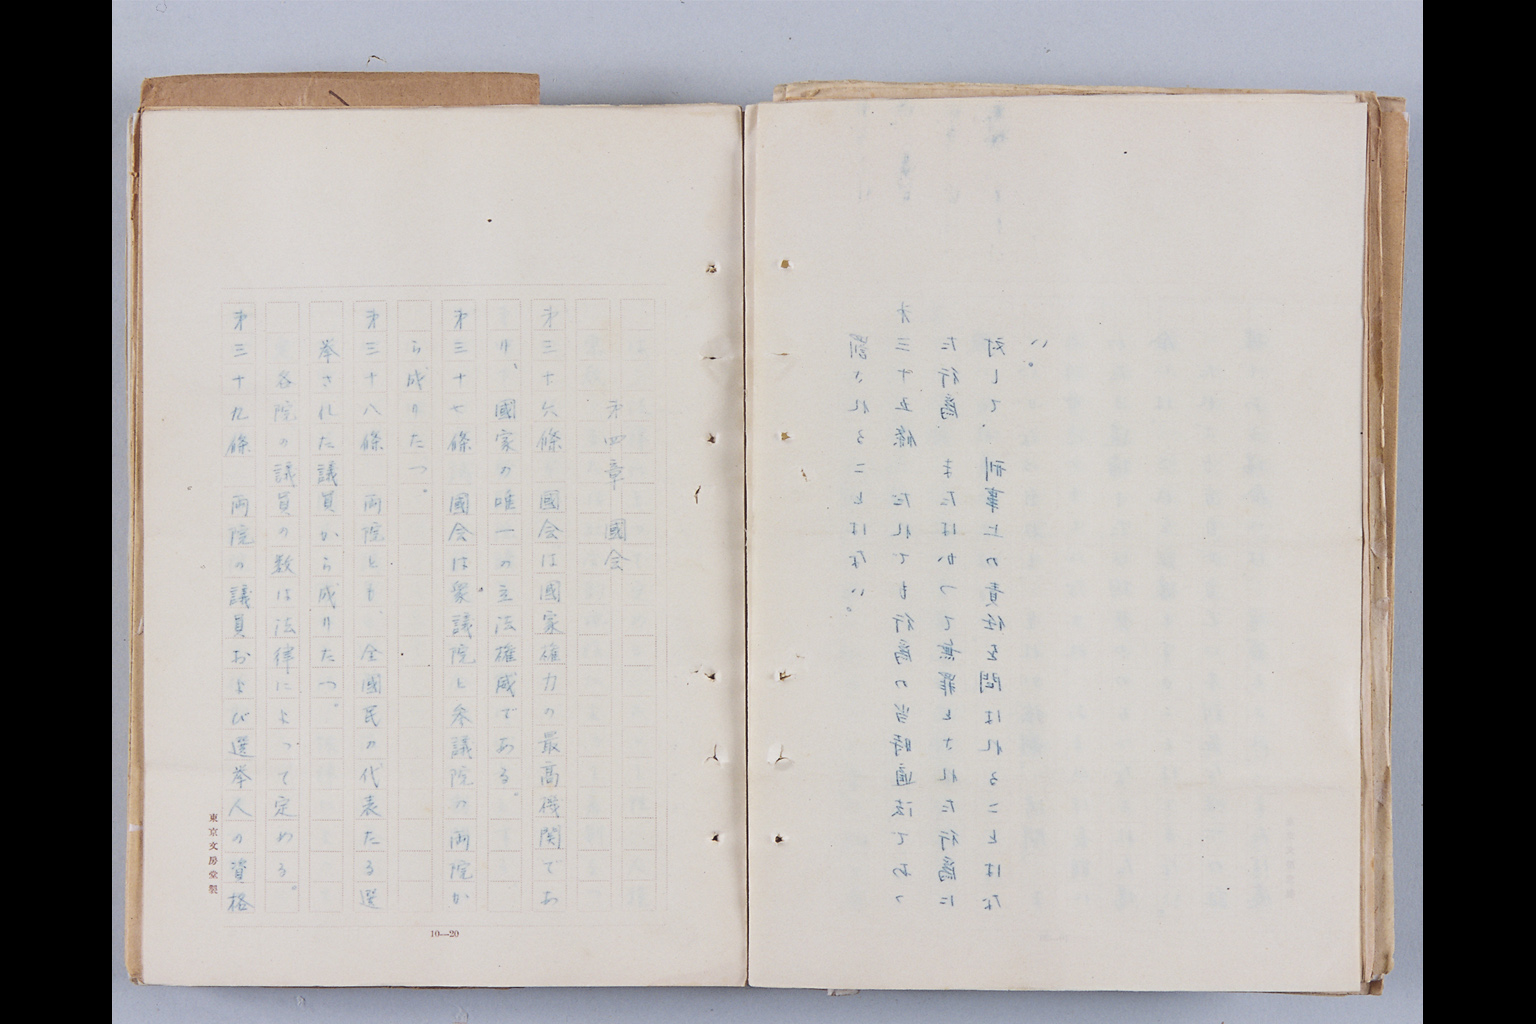 罰されることはない。
第三十五條　だれでも行為の当時適法であつ
た行為　またはかつて無罪とされた行為に
対して、刑事上の責任を問はれることはな
い。
第四章　國会
第三十六條　國会は國家権力の最高機関であ
り、國家の唯一の立法権威である。
第三十七條　國会は衆議院と参議院の両院か
ら成りたつ。
第三十八條　両院とも、全國民の代表たる選
挙された議員から成りたつ。
各院の議員の数は法律によつて定める。
第三十九條　両院の議員および選挙人の資格
東京文房堂製
10—20